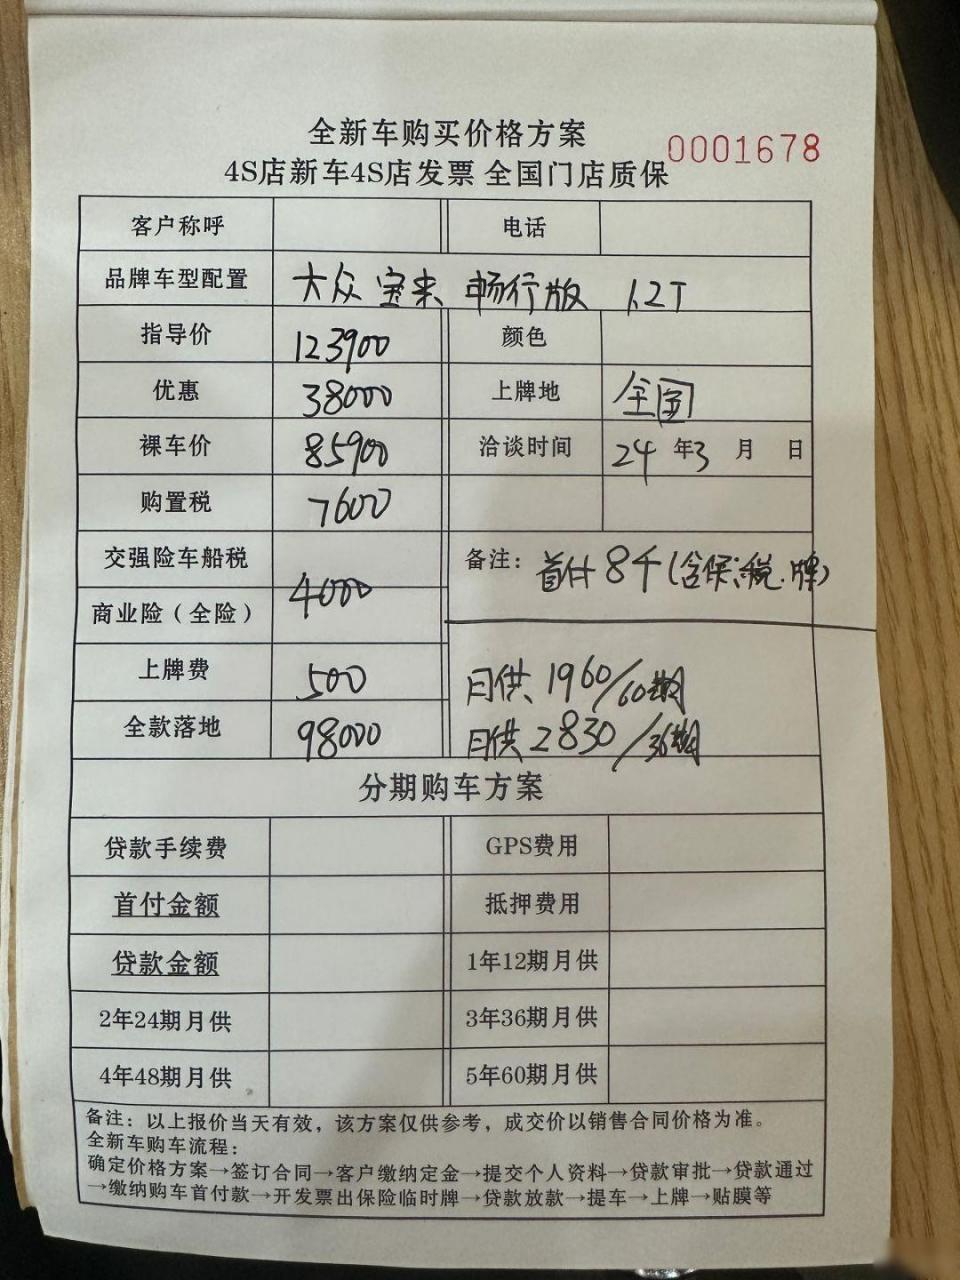 全新车购买价格方案
0001678
4S店新车4S店发票 全国门店质保
客户称呼 电话
品牌车型配置 大众 宝来 畅行版 1.2T
指导价 123900 颜色
优惠 38000 上牌地 全国
裸车价 85900 洽谈时间 24 年 3 月 日
购置税 7600
交强险车船税 备注: 首付 8千(含保、税.牌)
4000
商业险(全险)
上牌费 500 月供 1960/60期
全款落地 98000 月供 2830/36期
分期购车方案
贷款手续费 GPS费用
首付金额 抵押费用
贷款金额 1年12期月供
2年24期月供 3年36期月供
4年48期月供 5年60期月供
备注: 以上报价当天有效，该方案仅供参考，成交价以销售合同价格为准。
全新车购车流程:
确定价格方案→签订合同→客户缴纳定金→提交个人资料→贷款审批→贷款通过
→缴纳购车首付款→开发票出保险临时牌→贷款放款→提车→上牌→贴膜等